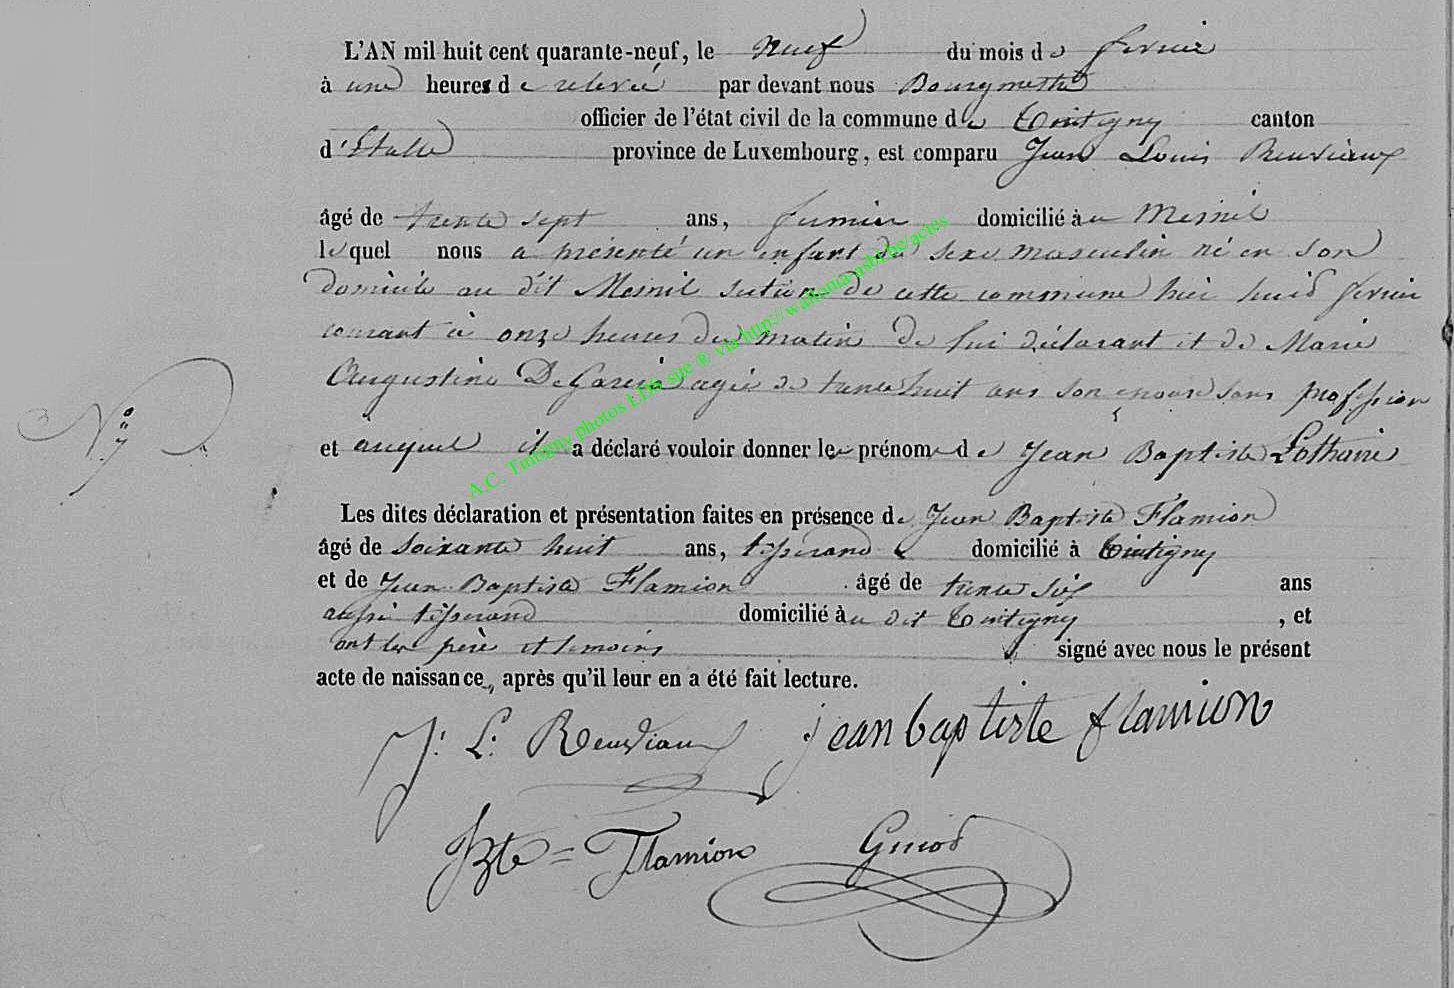 L'AN mil huit cent quarante-neuf, le neuf du mois de fevrier
à une heures de relevée par devant nous Bourgmestre
officier de l'état civil de la commune de Tintigny canton
d'Etalle province de Luxembourg, est comparu Jean Louis Reuviaux
âgé de trente sept ans, domicilié au Mesnil
lequel nous a présenté un enfant du sexe masculin né en son
domicile au dit Mesnil section de cette commune hier huit fevrier
courant à onze heures du matin de lui déclarant et de Marie
Augustine De Garcia agée de trente huit ans son epouse sans profession
N° 7
et auquel il a déclaré vouloir donner les prénoms de Jean Baptiste Lothaire
Les dites déclaration et présentation faites en présence de Jean Baptiste Flamion
âgé de soixante huit ans, tisserand domicilié à Tintigny
et de Jean Baptiste Flamion âgé de trente six ans
aussi tisserand domicilié au dit Tintigny, et
ont les père et témoins signé avec nous le présent
acte de naissance, après qu'il leur en a été fait lecture.
J. L. Reuviaux jean baptiste flamion
JBte = Flamion
A.C. Tintigny photos LDS sue ® via http://wallonia-asbl.be/actes